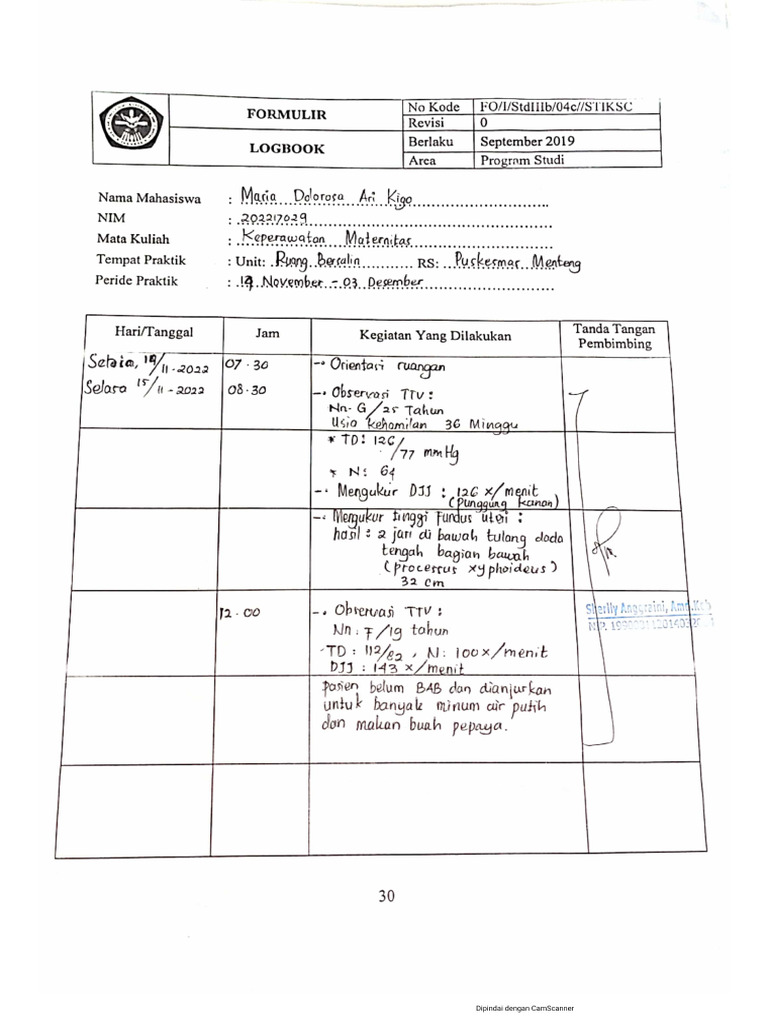 FORMULIR
LOGBOOK
No Kode FO/I/StdIIIb/04c//STIKSC
Revisi 0
Berlaku September 2019
Area Program Studi
Nama Mahasiswa : Maria Dolorosa Ari Kigo
NIM : 202217029
Mata Kuliah : Keperawatan Maternitas
Tempat Praktik : Unit: Ruang Bersalin RS: Puskesmas Menteng
Peride Praktik : 14 November - 03 Desember
Hari/Tanggal Jam Kegiatan Yang Dilakukan Tanda Tangan Pembimbing
14/11-2022 07.30 - Orientasi ruangan
Selasa 15/11-2022 08.30 - Observasi TTV :
Nn. G/25 Tahun
Usia kehamilan 36 Minggu
* TD: 126/77 mmHg
* N: 64
- Mengukur DJJ : 126 x/menit
(punggung kanan)
- Mengukur tinggi Fundus uteri :
hasil : 2 jari di bawah tulang dada
tengah bagian bawah
(processus xyphoideus)
32 cm
12.00 - Observasi TTV :
Nn. F/19 tahun
TD : 112/82, N: 100x/menit
DJJ : 143 x/menit
pasien belum BAB dan dianjurkan
untuk banyak minum air putih
dan makan buah pepaya.
Sherlly Anggraini, Amd.Keb
NIP.
30
Dipindai dengan CamScanner